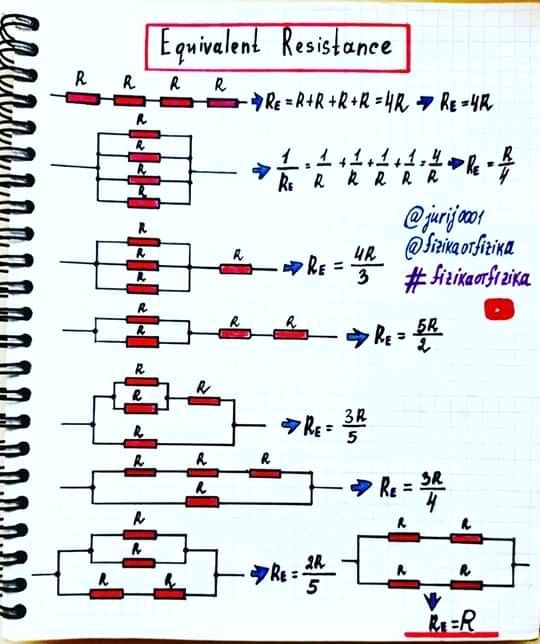 Equivalent Resistance
R R R R
RE = R+R+R+R = 4R → RE = 4R
R
R
R
R
1/RE = 1/R + 1/R + 1/R + 1/R = 4/R → RE = R/4
@jurij0001
@fizikaotfizika
#fizikaotfizika
R
R
R
R
RE = 4R/3
R
R
R R
RE = 5R/2
R
R
R
R
RE = 3R/5
R R R
R
RE = 3R/4
R
R
R R
RE = 2R/5
R R
R R
RE = R